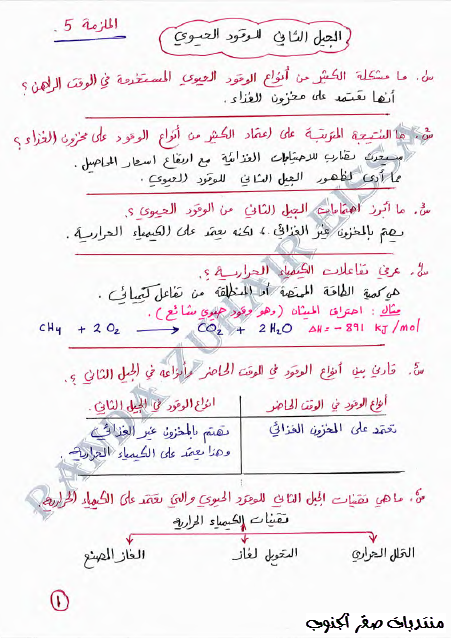 الملزمة 5 .
الجيل الثاني للوقود الحيوي
س١. ما مشكلة الكثير من أنواع الوقود الحيوي المستخدمة في الوقت الراهن ؟
أنها تعتمد على مخزون الغذاء .
س٢. ما النتيجة المترتبة على اعتماد الكثير من أنواع الوقود على مخزون الغذاء ؟
تضارب للاهتمامات الغذائية مع ارتفاع اسعار المحاصيل .
مما أدى لظهور الجيل الثاني للوقود الحيوي .
س٣. ما أبرز اهتمامات الجيل الثاني من الوقود الحيوي ؟
يهتم بالمخزون غير الغذائي ، لكنه يعتمد على الكيمياء الحرارية .
س٤. عرفي تفاعلات الكيمياء الحرارية ؟
هي كمية الطاقة الممتصة أو المنطلقة من تفاعل كيميائي .
مثال : احتراق الميثان ( وهو وقود حيوي شائع ) .
CH4 + 2O2 → CO2 + 2H2O ΔH = - 891 KJ/mol
س٥. قارني بين أنواع الوقود في الوقت الحاضر وأنواعه في الجيل الثاني ؟
أنواع الوقود في الوقت الحاضر
انواع الوقود في الجيل الثاني
تعتمد على المخزون الغذائي
تهتم بالمخزون غير الغذائي
وهذا يعتمد على الكيمياء الحرارية .
س٦. ما هي تقنيات الجيل الثاني للوقود الحيوي والتي تعتمد على الكيمياء الحرارية
تقنيات الكيمياء الحرارية
التحلل الحراري
التحويل لغاز
الغاز المصنع
١
منتديات صقر الجنوب
RANDA ZUHAIR EISSA